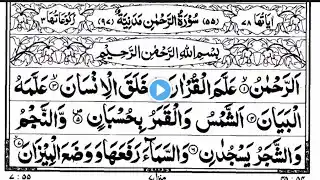 اٰیَاتُهَا ۷۸ (۵۵) سُوْرَةُ الرَّحْمٰنِ مَدَنِیَّةٌ (۹۷) رُكُوْعَاتُهَا ۳
بِسْمِ اللّٰهِ الرَّحْمٰنِ الرَّحِیْمِ
اَلرَّحْمٰنُ ۙ عَلَّمَ الْقُرْاٰنَ ۙ خَلَقَ الْاِنْسَانَ ۙ عَلَّمَهُ
الْبَیَانَ اَلشَّمْسُ وَالْقَمَرُ بِحُسْبَانٍ ۪ وَّالنَّجْمُ
وَالشَّجَرُ یَسْجُدٰنِ وَالسَّمَآءَ رَفَعَهَا وَوَضَعَ الْمِیْزَانَ ۙ